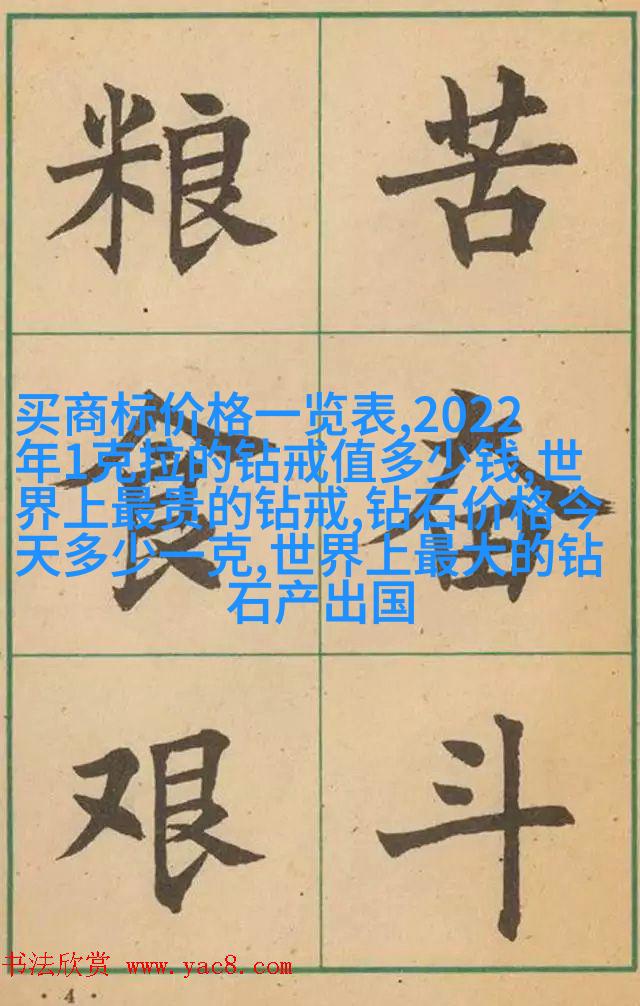 苦奋斗
粮食艰
买商标价格一览表,2022
年1克拉的钻戒值多少钱,世
界上最贵的钻戒,钻石价格今
天多少一克,世界上最大的钻
石产出国
书法欣赏 www.yac8.com
· 4 ·